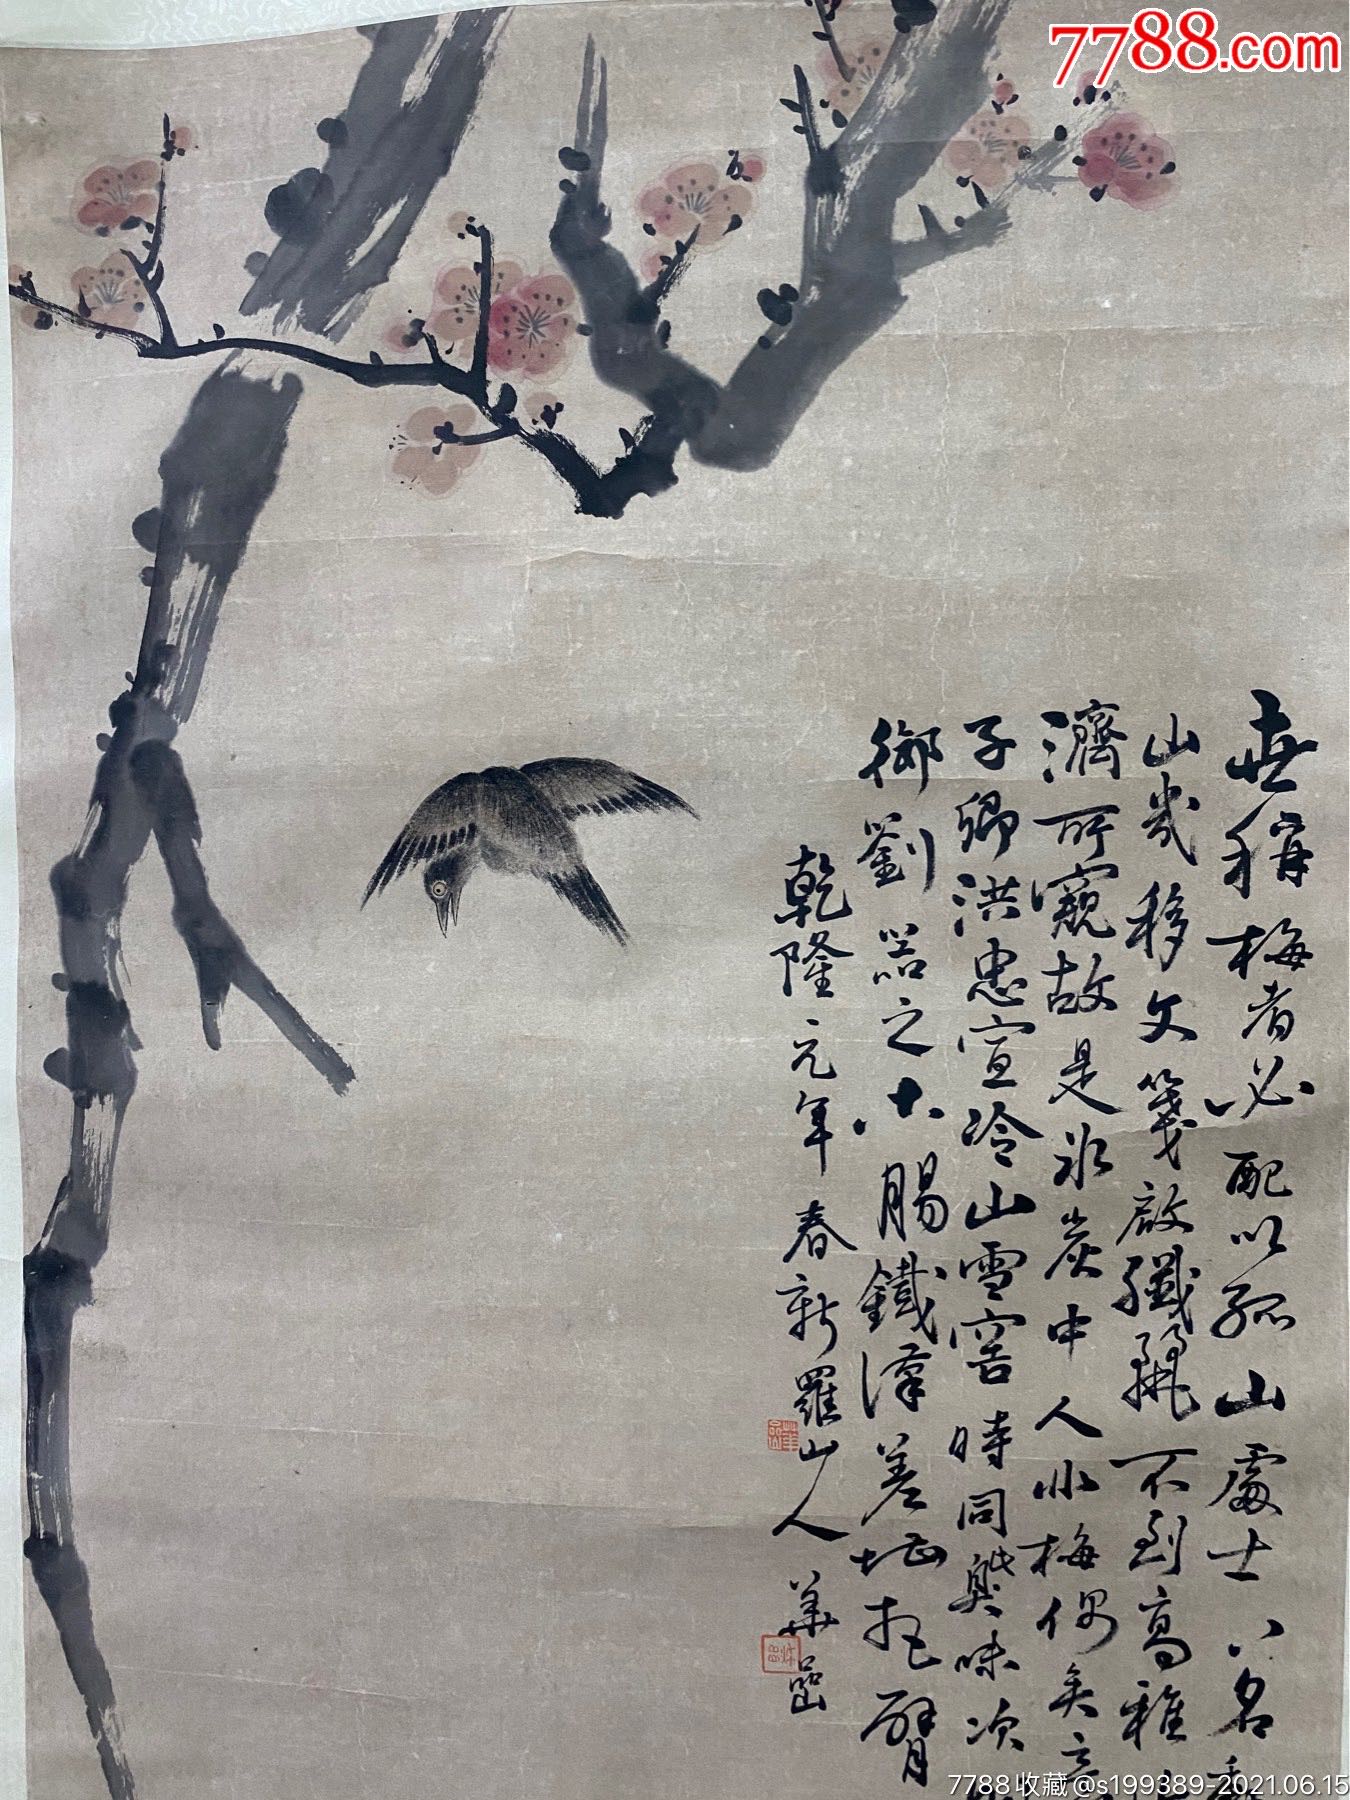 7788.com
世稱梅者必配以孤山處士
山岁移文箋啟纖穠不到高雅
濟所窺故是冰炭中人非梅偶矣
子卿洪忠宣冷山雪窖時同與味次
鄉劉器之心腸鐵漢差堪把臂
乾隆元年春新羅山人華嵒
7788收藏@s199389-2021.06.15